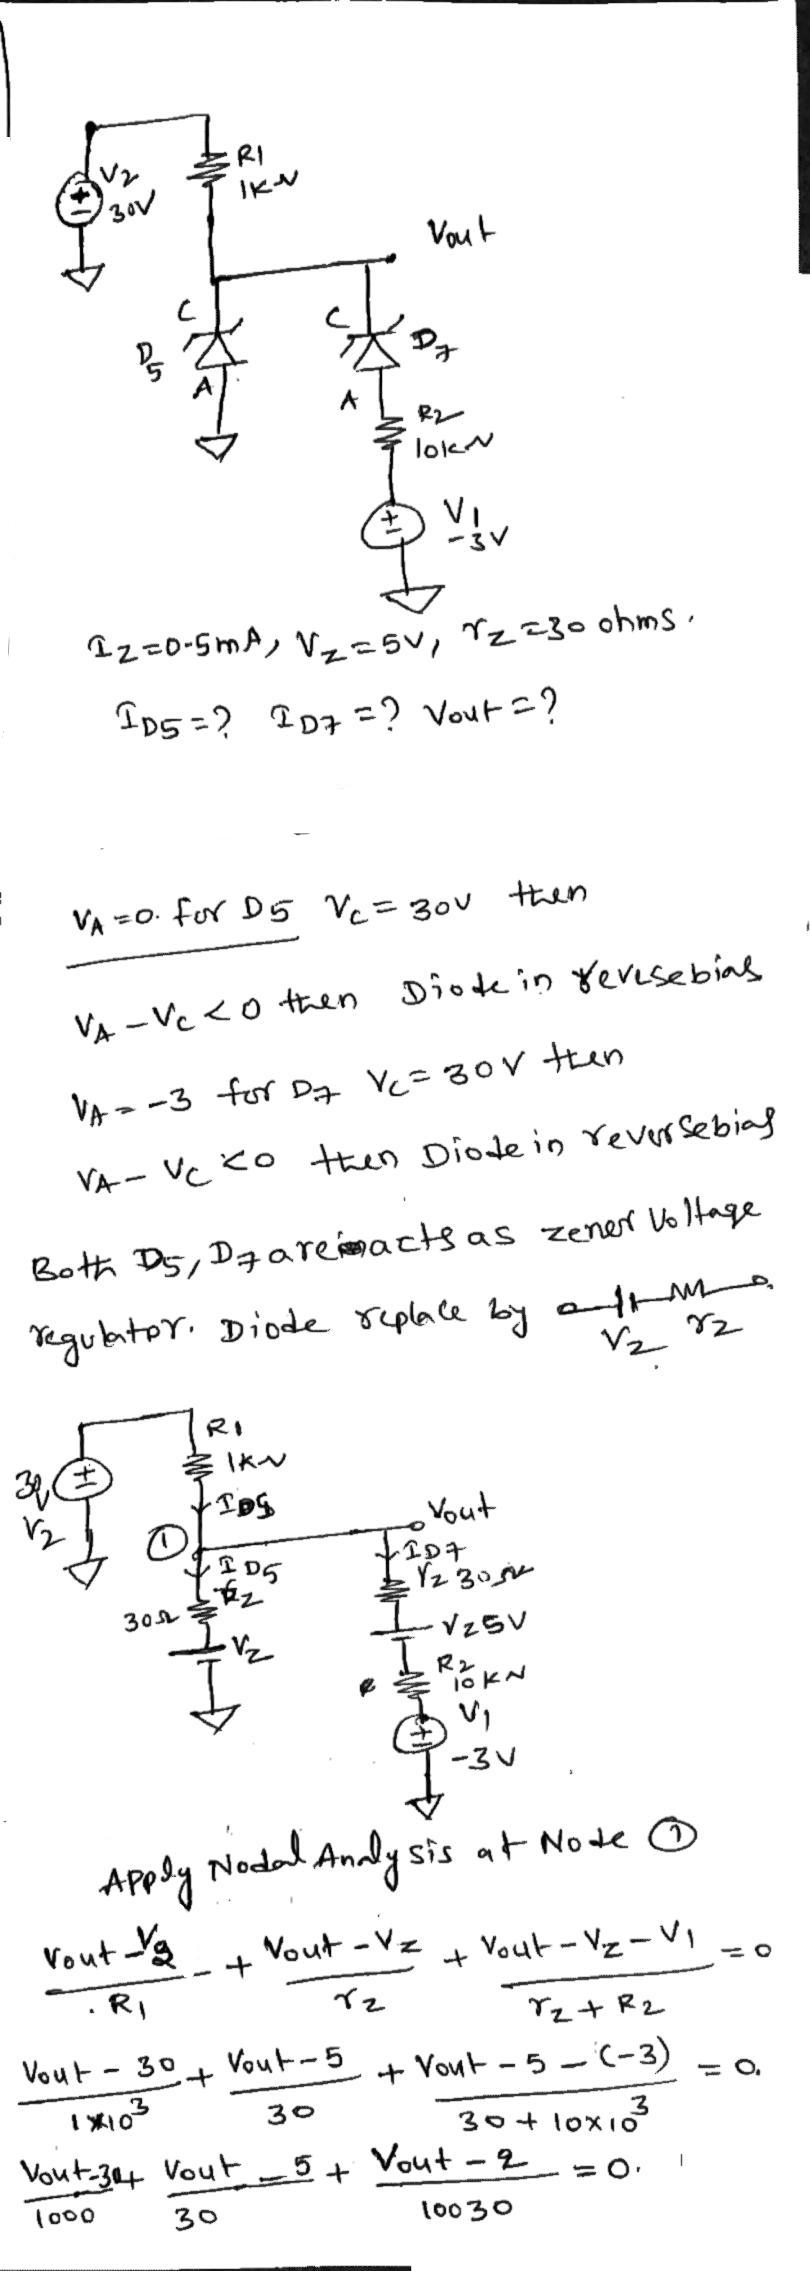 V2
30V
R1
1KΩ
Vout
C
D5
A
C
D7
A
R2
10KΩ
V1
-3V
Iz=0.5mA, Vz=5V, rz=30 ohms.
ID5=? ID7=? Vout=?
VA=0. for D5 Vc=30V then
VA-Vc<0 then Diode in revesebias
VA=-3 for D7 Vc=30V then
VA-Vc<0 then Diode in reversebias
Both D5, D7 are acts as zener Voltage
regulator. Diode replace by
Vz rz
R1
1KΩ
30V
V2
ID5
Vout
①
ID5
rz
30Ω
Vz
ID7
rz 30Ω
Vz5V
R2
10KΩ
V1
-3V
Apply Nodal Analysis at Node ①
Vout-V2/R1 + Vout-Vz/rz + Vout-Vz-V1/rz+R2 =0
Vout-30/1×10³ + Vout-5/30 + Vout-5-(-3)/30+10×10³ =0.
Vout-30/1000 + Vout-5/30 + Vout-2/10030 =0.